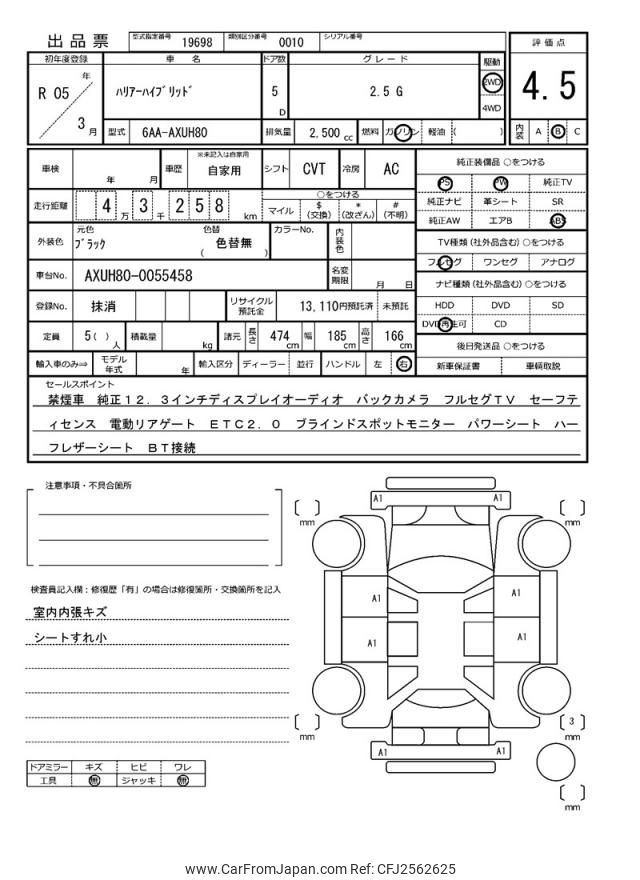 出品票
型式指定番号 19698 類別区分番号 0010 シリアル番号
初年度登録 車名 ドア数 グレード 駆動 評価点
R 05 年 3 月
ハリアーハイブリッド 5 D 2.5 G 2WD 4WD
4.5
型式 6AA-AXUH80 排気量 2,500 cc 燃料 ガソリン 軽油 ( ) 内装 A B C
車検 年 月 車歴 ※未記入は自家用 自家用 シフト CVT 冷房 AC
純正装備品 ○をつける
PS PW 純正TV
純正ナビ 革シート SR
純正AW エアB ABS
走行距離 4 万 3 千 2 5 8 km
○をつける
マイル $ (交換) * (改ざん) # (不明)
外装色 元色 ブラック 色替 ( 色替無 ) カラーNo. 内装色
TV種類 (社外品含む) ○をつける
フルセグ ワンセグ アナログ
車台No. AXUH80-0055458 名変期限 月 日
ナビ種類 (社外品含む) ○をつける
HDD DVD SD
DVD再生可 CD
登録No. 抹消 リサイクル預託金 13,110円預託済 未預託
定員 5 ( ) 人 積載量 kg 諸元 長さ 474 cm 幅 185 cm 高さ 166 cm
後日発送品 ○をつける
新車保証書 車輌取説
輸入車のみ⇒ モデル年式 年 輸入区分 ディーラー 並行 ハンドル 左 右
セールスポイント
禁煙車 純正12.3インチディスプレイオーディオ バックカメラ フルセグTV セーフテ
ィセンス 電動リアゲート ETC2.0 ブラインドスポットモニター パワーシート ハー
フレザーシート BT接続
注意事項・不具合箇所
検査員記入欄：修復歴「有」の場合は修復箇所・交換箇所を記入
室内内張キズ
シートすれ小
ドアミラー キズ ヒビ ワレ
工具 無 ジャッキ 無
A1 A1
mm mm
A1 A1
A1 A1
mm 3 mm
A1 A1
mm
www.CarFromJapan.com Ref: CFJ2562625